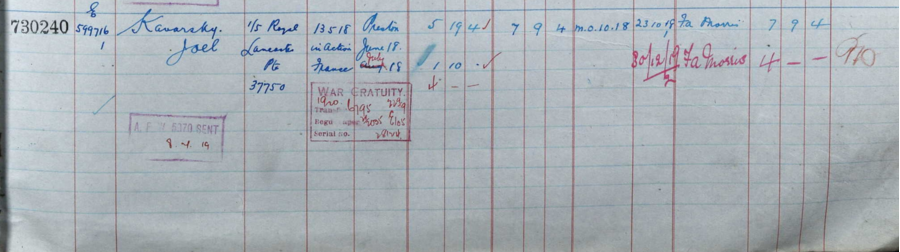 E
730240 599716 Kavarsky. 1/5 Royal 13 5 18 Preston 5 19 4 ✓ 7 9 4 m.o.10.18 23 10 19 Fa Morris 7 9 4
1 Joel Lancaster in Action June 18.
Pte France July 18 1 10 - ✓ 30/12/19 Fa Morris 4 - -
37750 4 - -
WAR GRATUITY.
1920
Regu
Serial no.
A. F. W 5070 SENT
8. 4. 19